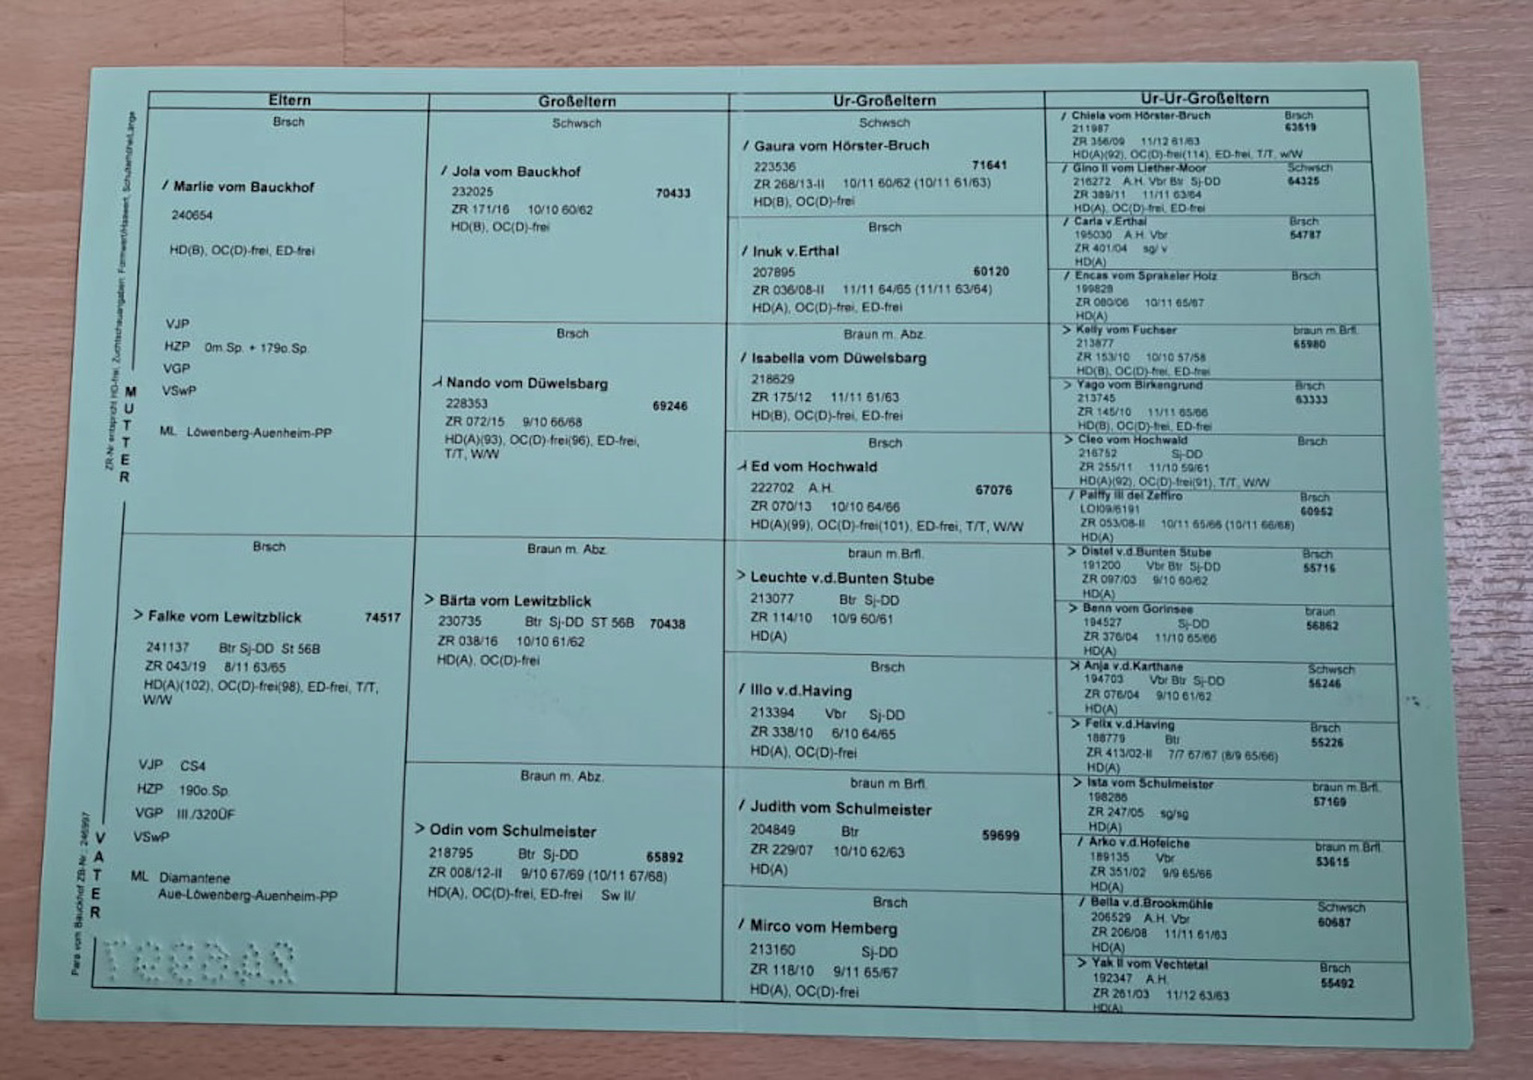 Eltern
Großeltern
Ur-Großeltern
Ur-Ur-Großeltern
Brsch
/ Marlie vom Bauckhof
240654
HD(B), OC(D)-frei, ED-frei
VJP
HZP 0m.Sp. + 179o.Sp.
VGP
VSwP
ML Löwenberg-Auenheim-PP
MUTTER
Brsch
> Falke vom Lewitzblick 74517
241137 Btr Sj-DD St 56B
ZR 043/19 8/11 63/65
HD(A)(102), OC(D)-frei(98), ED-frei, T/T,
W/W
VJP CS4
HZP 190o.Sp.
VGP III./320ÜF
VSwP
ML Diamantene
Aue-Löwenberg-Auenheim-PP
VATER
Schwsch
/ Jola vom Bauckhof
232025 70433
ZR 171/16 10/10 60/62
HD(B), OC(D)-frei
Brsch
Nando vom Düwelsbarg
228353 69246
ZR 072/15 9/10 66/68
HD(A)(93), OC(D)-frei(96), ED-frei,
T/T, W/W
Braun m. Abz.
> Bärta vom Lewitzblick
230735 Btr Sj-DD ST 56B 70438
ZR 038/16 10/10 61/62
HD(A), OC(D)-frei
Braun m. Abz.
> Odin vom Schulmeister
218795 Btr Sj-DD 65892
ZR 008/12-II 9/10 67/69 (10/11 67/68)
HD(A), OC(D)-frei, ED-frei Sw II/
Schwsch
/ Gaura vom Hörster-Bruch
223536 71641
ZR 268/13-II 10/11 60/62 (10/11 61/63)
HD(B), OC(D)-frei
Brsch
/ Inuk v.Erthal
207895 60120
ZR 036/08-II 11/11 64/65 (11/11 63/64)
HD(A), OC(D)-frei, ED-frei
Braun m. Abz.
/ Isabella vom Düwelsbarg
218629
ZR 175/12 11/11 61/63
HD(B), OC(D)-frei, ED-frei
Brsch
Ed vom Hochwald
222702 A.H. 67076
ZR 070/13 10/10 64/66
HD(A)(99), OC(D)-frei(101), ED-frei, T/T, W/W
braun m.Brfl.
> Leuchte v.d.Bunten Stube
213077 Btr Sj-DD
ZR 114/10 10/9 60/61
HD(A)
Brsch
/ Illo v.d.Having
213394 Vbr Sj-DD
ZR 338/10 6/10 64/65
HD(A), OC(D)-frei
braun m.Brfl.
/ Judith vom Schulmeister
204849 Btr 59699
ZR 229/07 10/10 62/63
HD(A)
Brsch
/ Mirco vom Hemberg
213160 Sj-DD
ZR 118/10 9/11 65/67
HD(A), OC(D)-frei
/ Chiela vom Hörster-Bruch Brsch
211987 63519
ZR 356/09 11/12 61/63
HD(A)(92), OC(D)-frei(114), ED-frei, T/T, w/W
/ Gino II vom Liether-Moor Schwsch
216272 A.H. Vbr Btr Sj-DD 64325
ZR 389/11 11/11 63/64
HD(A), OC(D)-frei, ED-frei
/ Carla v.Erthal Brsch
195030 A.H. Vbr 54787
ZR 401/04 sg/ v
HD(A)
/ Encas vom Sprakeler Holz Brsch
199828
ZR 080/06 10/11 65/67
HD(A)
> Kelly vom Fuchser braun m.Brfl.
213877 65980
ZR 153/10 10/10 57/58
HD(B), OC(D)-frei, ED-frei
> Yago vom Birkengrund Brsch
213745 63333
ZR 145/10 11/11 65/66
HD(B), OC(D)-frei, ED-frei
> Cleo vom Hochwald Brsch
216752 Sj-DD
ZR 255/11 11/10 59/61
HD(A)(92), OC(D)-frei(91), T/T, W/W
/ Palffy III del Zeffiro Brsch
LOI09/6191 60952
ZR 053/08-II 10/11 65/66 (10/11 66/68)
HD(A)
> Distel v.d.Bunten Stube Brsch
191200 Vbr Btr Sj-DD 55716
ZR 097/03 9/10 60/62
HD(A)
> Benn vom Gorinsee braun
194527 Sj-DD 56862
ZR 376/04 11/10 65/66
HD(A)
Anja v.d.Karthane Schwsch
194703 Vbr Btr Sj-DD 56246
ZR 076/04 9/10 61/62
HD(A)
> Felix v.d.Having Brsch
188779 Btr 55226
ZR 413/02-II 7/7 67/67 (8/9 65/66)
HD(A)
> Ista vom Schulmeister braun m.Brfl.
198286 57169
ZR 247/05 sg/sg
HD(A)
/ Arko v.d.Hofeiche braun m.Brfl.
189135 Vbr 53615
ZR 351/02 9/9 65/66
HD(A)
/ Bella v.d.Brookmühle Schwsch
206529 A.H. Vbr 60687
ZR 206/08 11/11 61/63
HD(A)
> Yak II vom Vechtetal Brsch
192347 A.H. 55492
ZR 261/03 11/12 63/63
HD(A)
ZR-Nr entspricht HD-frei, Zuchtschauangaben: Formwert/Haarwert, Schulterhöhe/Länge
Para vom Bauckhof ZB-Nr.: 246997
246997